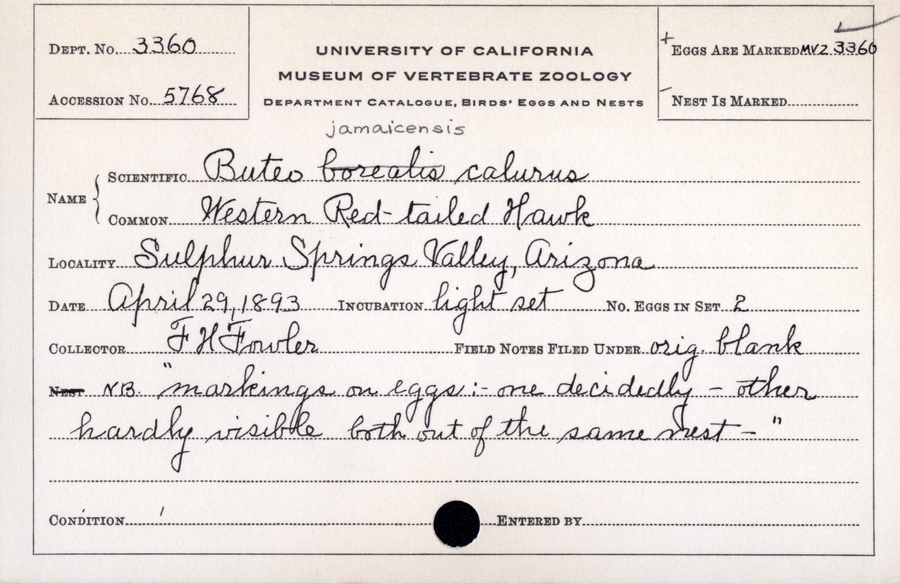 DEPT. No. 3360
UNIVERSITY OF CALIFORNIA
+ EGGS ARE MARKED MVZ 3360
MUSEUM OF VERTEBRATE ZOOLOGY
ACCESSION No. 5768
DEPARTMENT CATALOGUE, BIRDS' EGGS AND NESTS
- NEST IS MARKED
jamaicensis
NAME
SCIENTIFIC Buteo borealis calurus
COMMON Western Red-tailed Hawk
LOCALITY Sulphur Springs Valley, Arizona
DATE April 29, 1893 INCUBATION light set NO. EGGS IN SET 2
COLLECTOR F H Fowler FIELD NOTES FILED UNDER orig. blank
NEST NB. "markings on eggs:- one decidedly - other
hardly visible both out of the same nest - "
CONDITION ' ENTERED BY